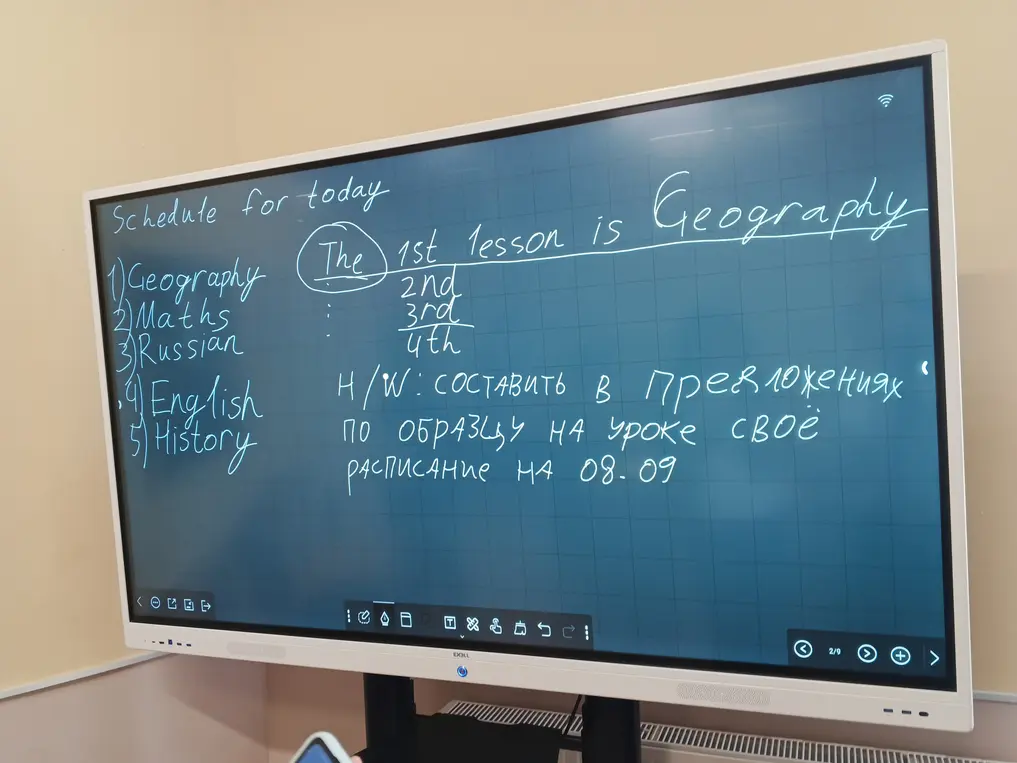 Schedule for today
1) Geography
2) Maths
3) Russian
4) English
5) History
The 1st lesson is Geography
2nd
3rd
4th
H/W: составить в предложениях
по образцу на уроке своё
расписание на 08.09
2/9